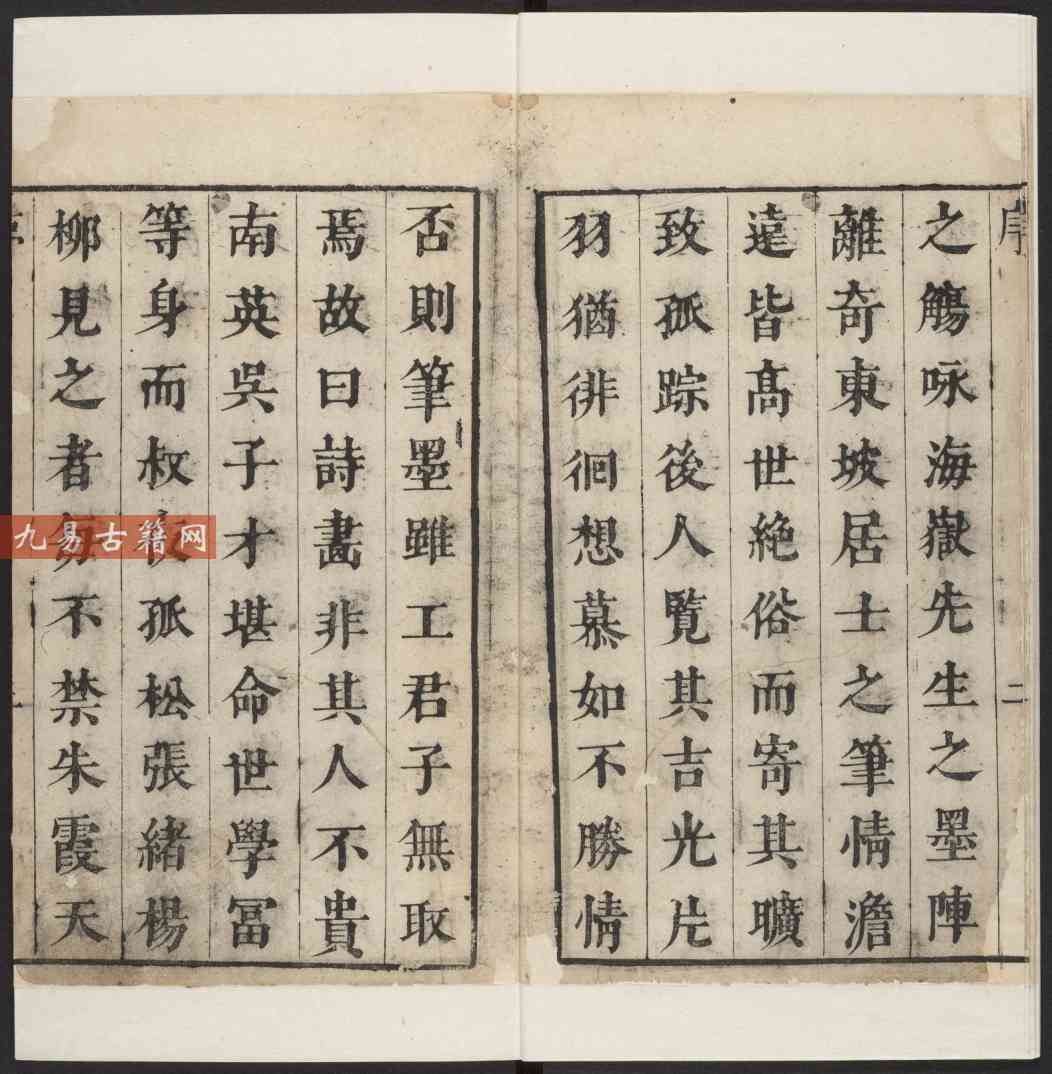 序
二
之觴咏海嶽先生之墨陣
離奇東坡居士之筆情澹
遠皆髙世絶俗而寄其曠
致孤踪後人覽其吉光片
羽猶徘徊想慕如不勝情
否則筆墨雖工君子無取
焉故曰詩畫非其人不貴
南英吳子才堪命世學冨
等身而叔孤松張緒楊
柳見之者每不禁朱霞天
九易古籍网